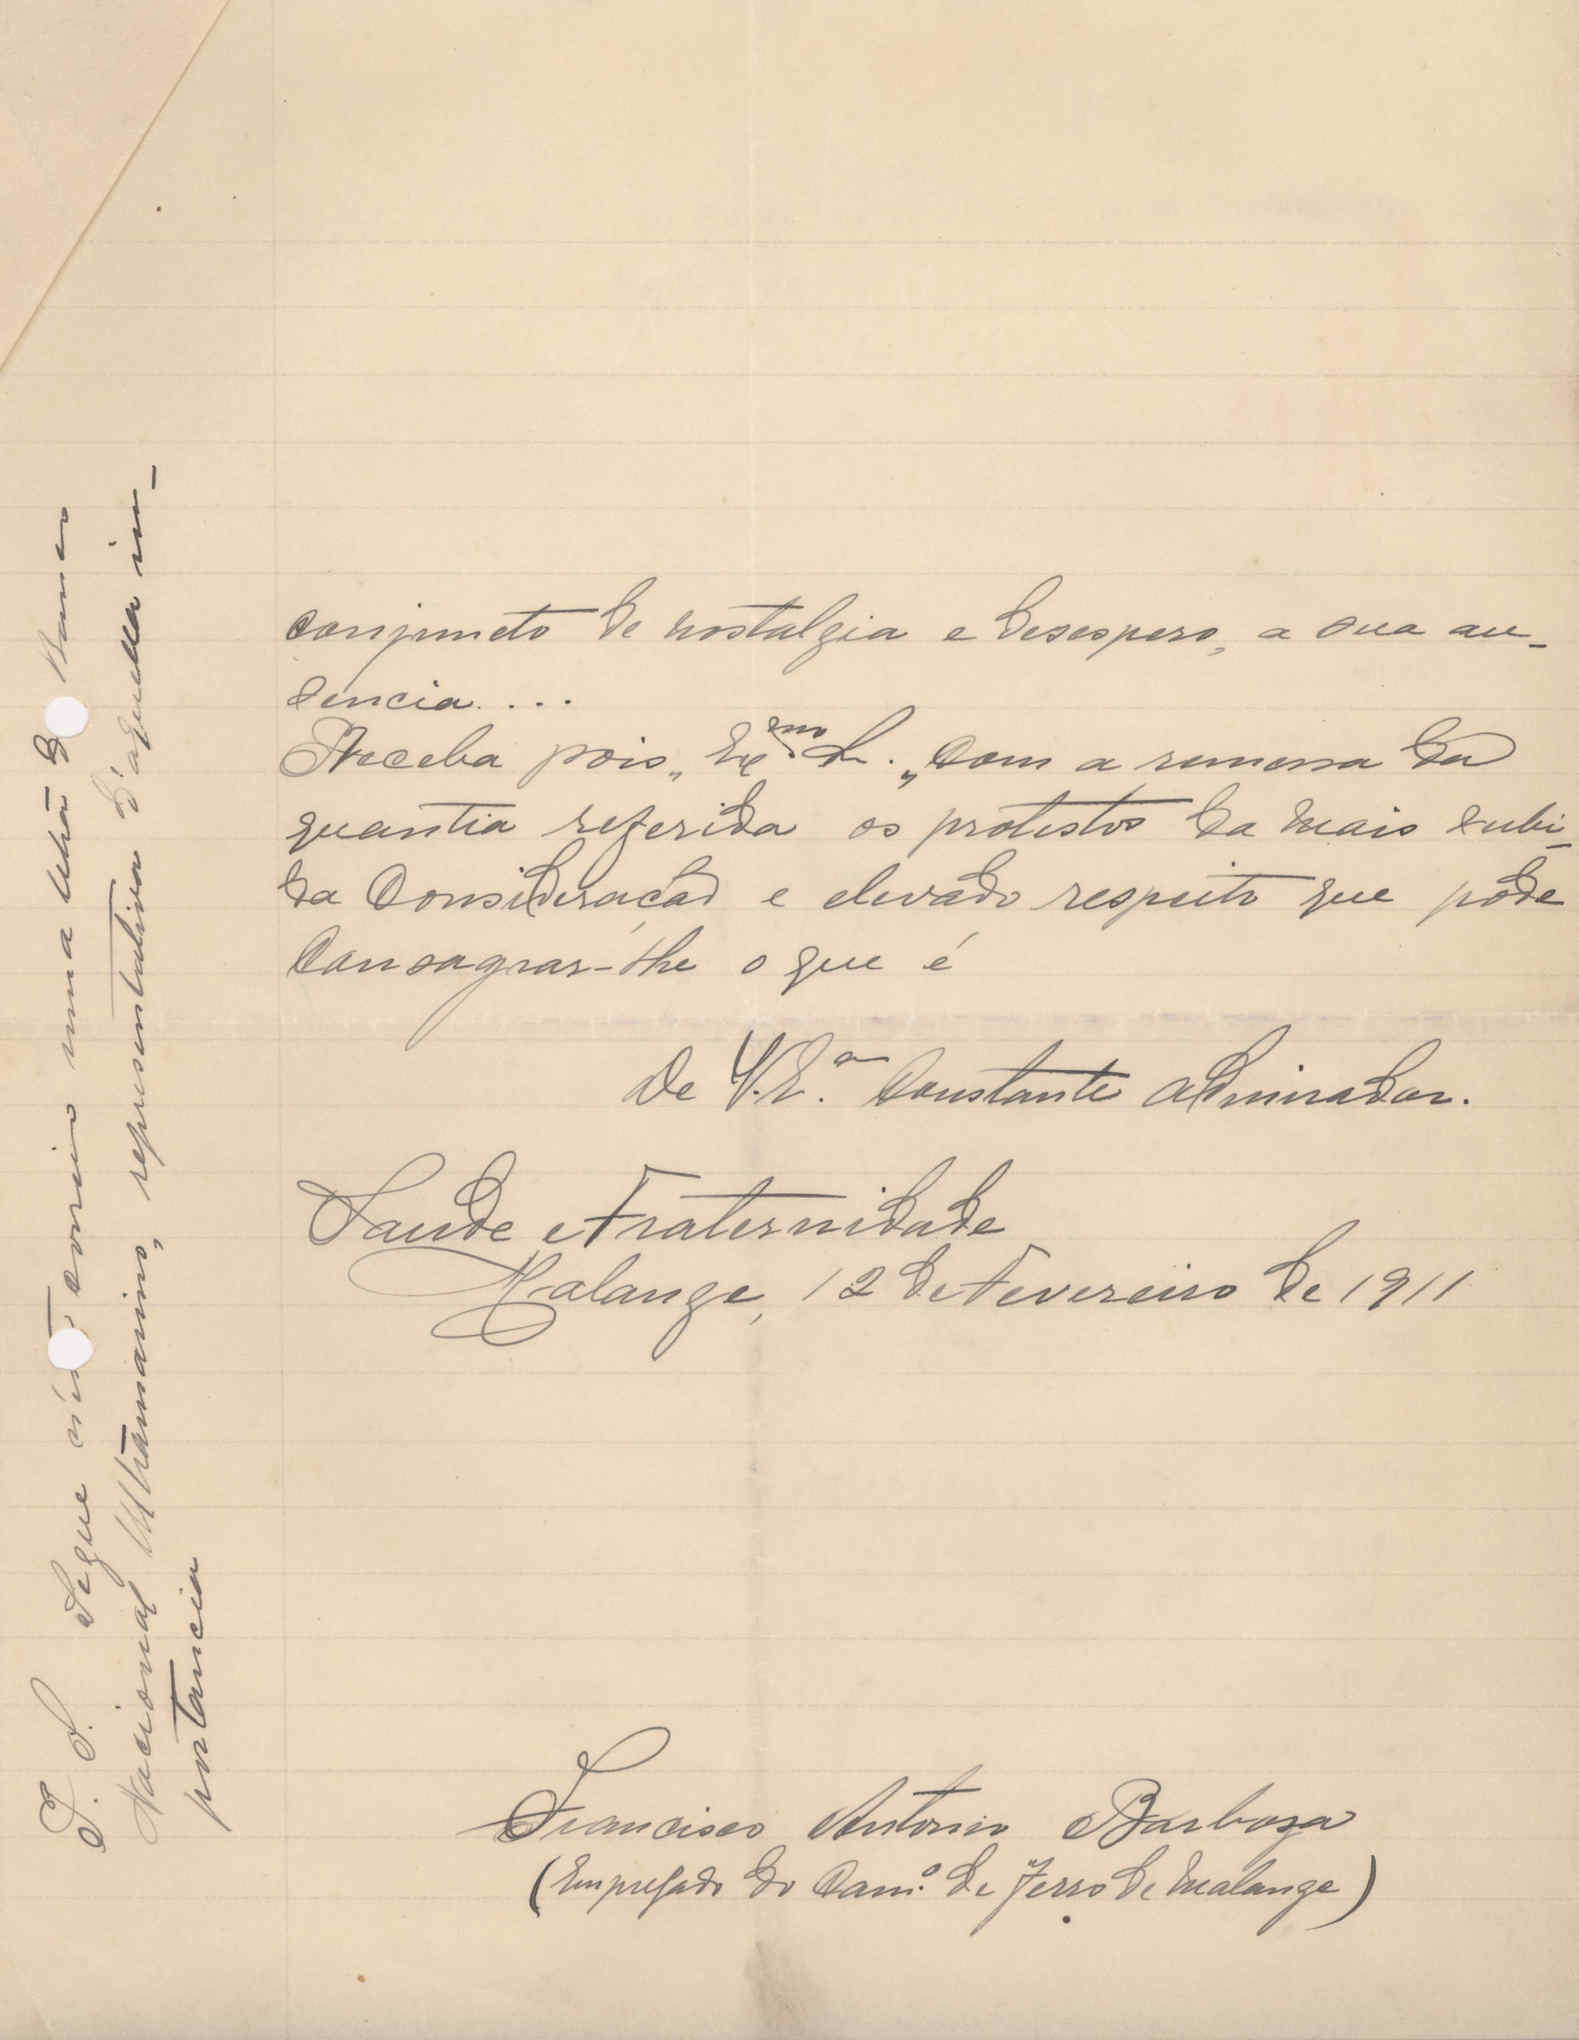 conjuncto de nostalgia e desespero, a sua au-
sencia....
Receba pois, Exmo Sr., com a remessa da
quantia referida os protestos da mais subi-
da consideração e elevado respeito que póde
consagrar-lhe o que é
De V. Ex.a constante admirador.
Saude e Fraternidade
Malange, 12 de Fevereiro de 1911
Francisco Antonio Barboza
(Empregado do Cam.o de Ferro de Malange)
Segue correio uma letra do Banco
Nacional Ultramarino, representativa d'aquella im-
portancia